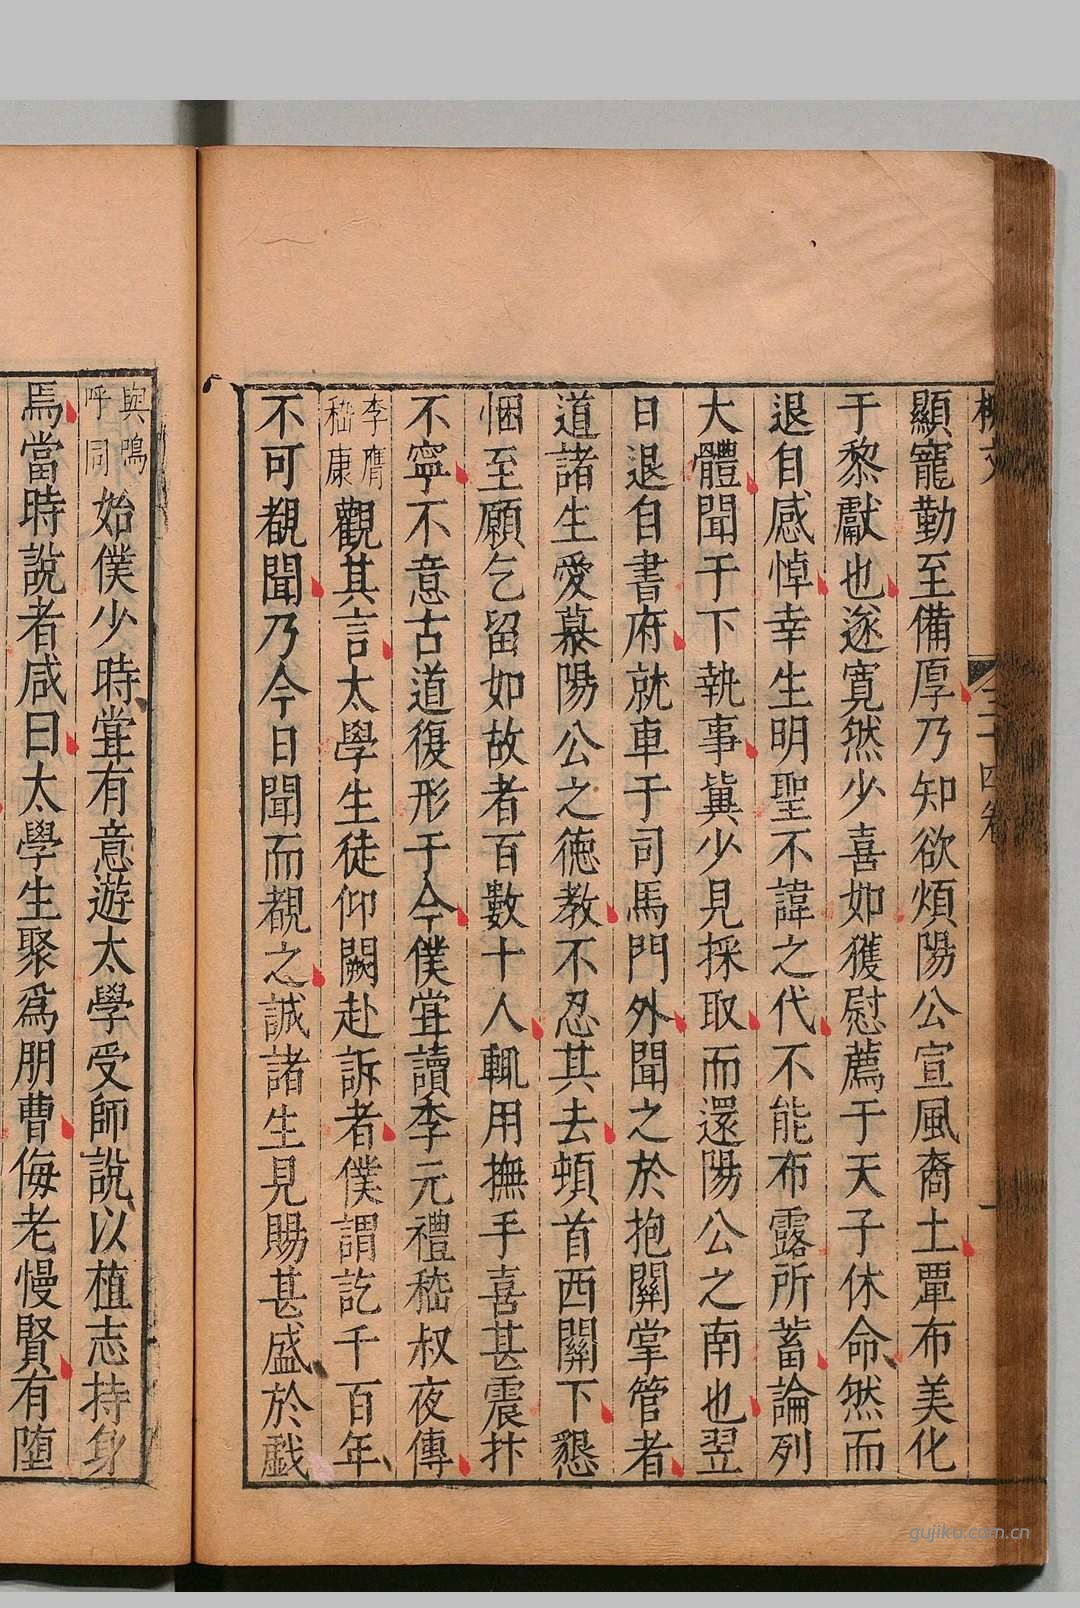 柳文 三十四卷 一
顯寵勤至備厚乃知欲煩陽公宣風裔土覃布美化
于黎獻也遂寛然少喜如獲慰薦于天子休命然而
退自感悼幸生明聖不諱之代不能布露所蓄論列
大體聞于下執事冀少見採取而還陽公之南也翌
日退自書府就車于司馬門外聞之於抱關掌管者
道諸生愛慕陽公之德教不忍其去頓首西闕下懇
悃至願乞留如故者百數十人輒用撫手喜甚震抃
不寧不意古道復形于今僕甞讀李元禮嵇叔夜傳
李膺嵇康觀其言太學生徒仰闕赴訴者僕謂訖千百年
不可覩聞乃今日聞而覩之誠諸生見賜甚盛於戯
與嗚呼同始僕少時甞有意遊太學受師說以植志持身
焉當時說者咸曰太學生聚爲朋曹侮老慢賢有堕
gujiku.com.cn